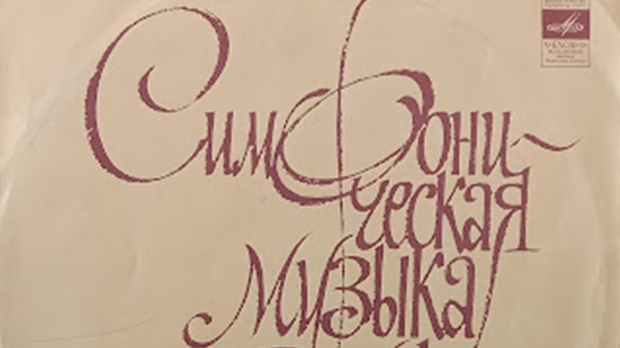 Симфони-
ческая
музыка
МЕЛОДИЯ